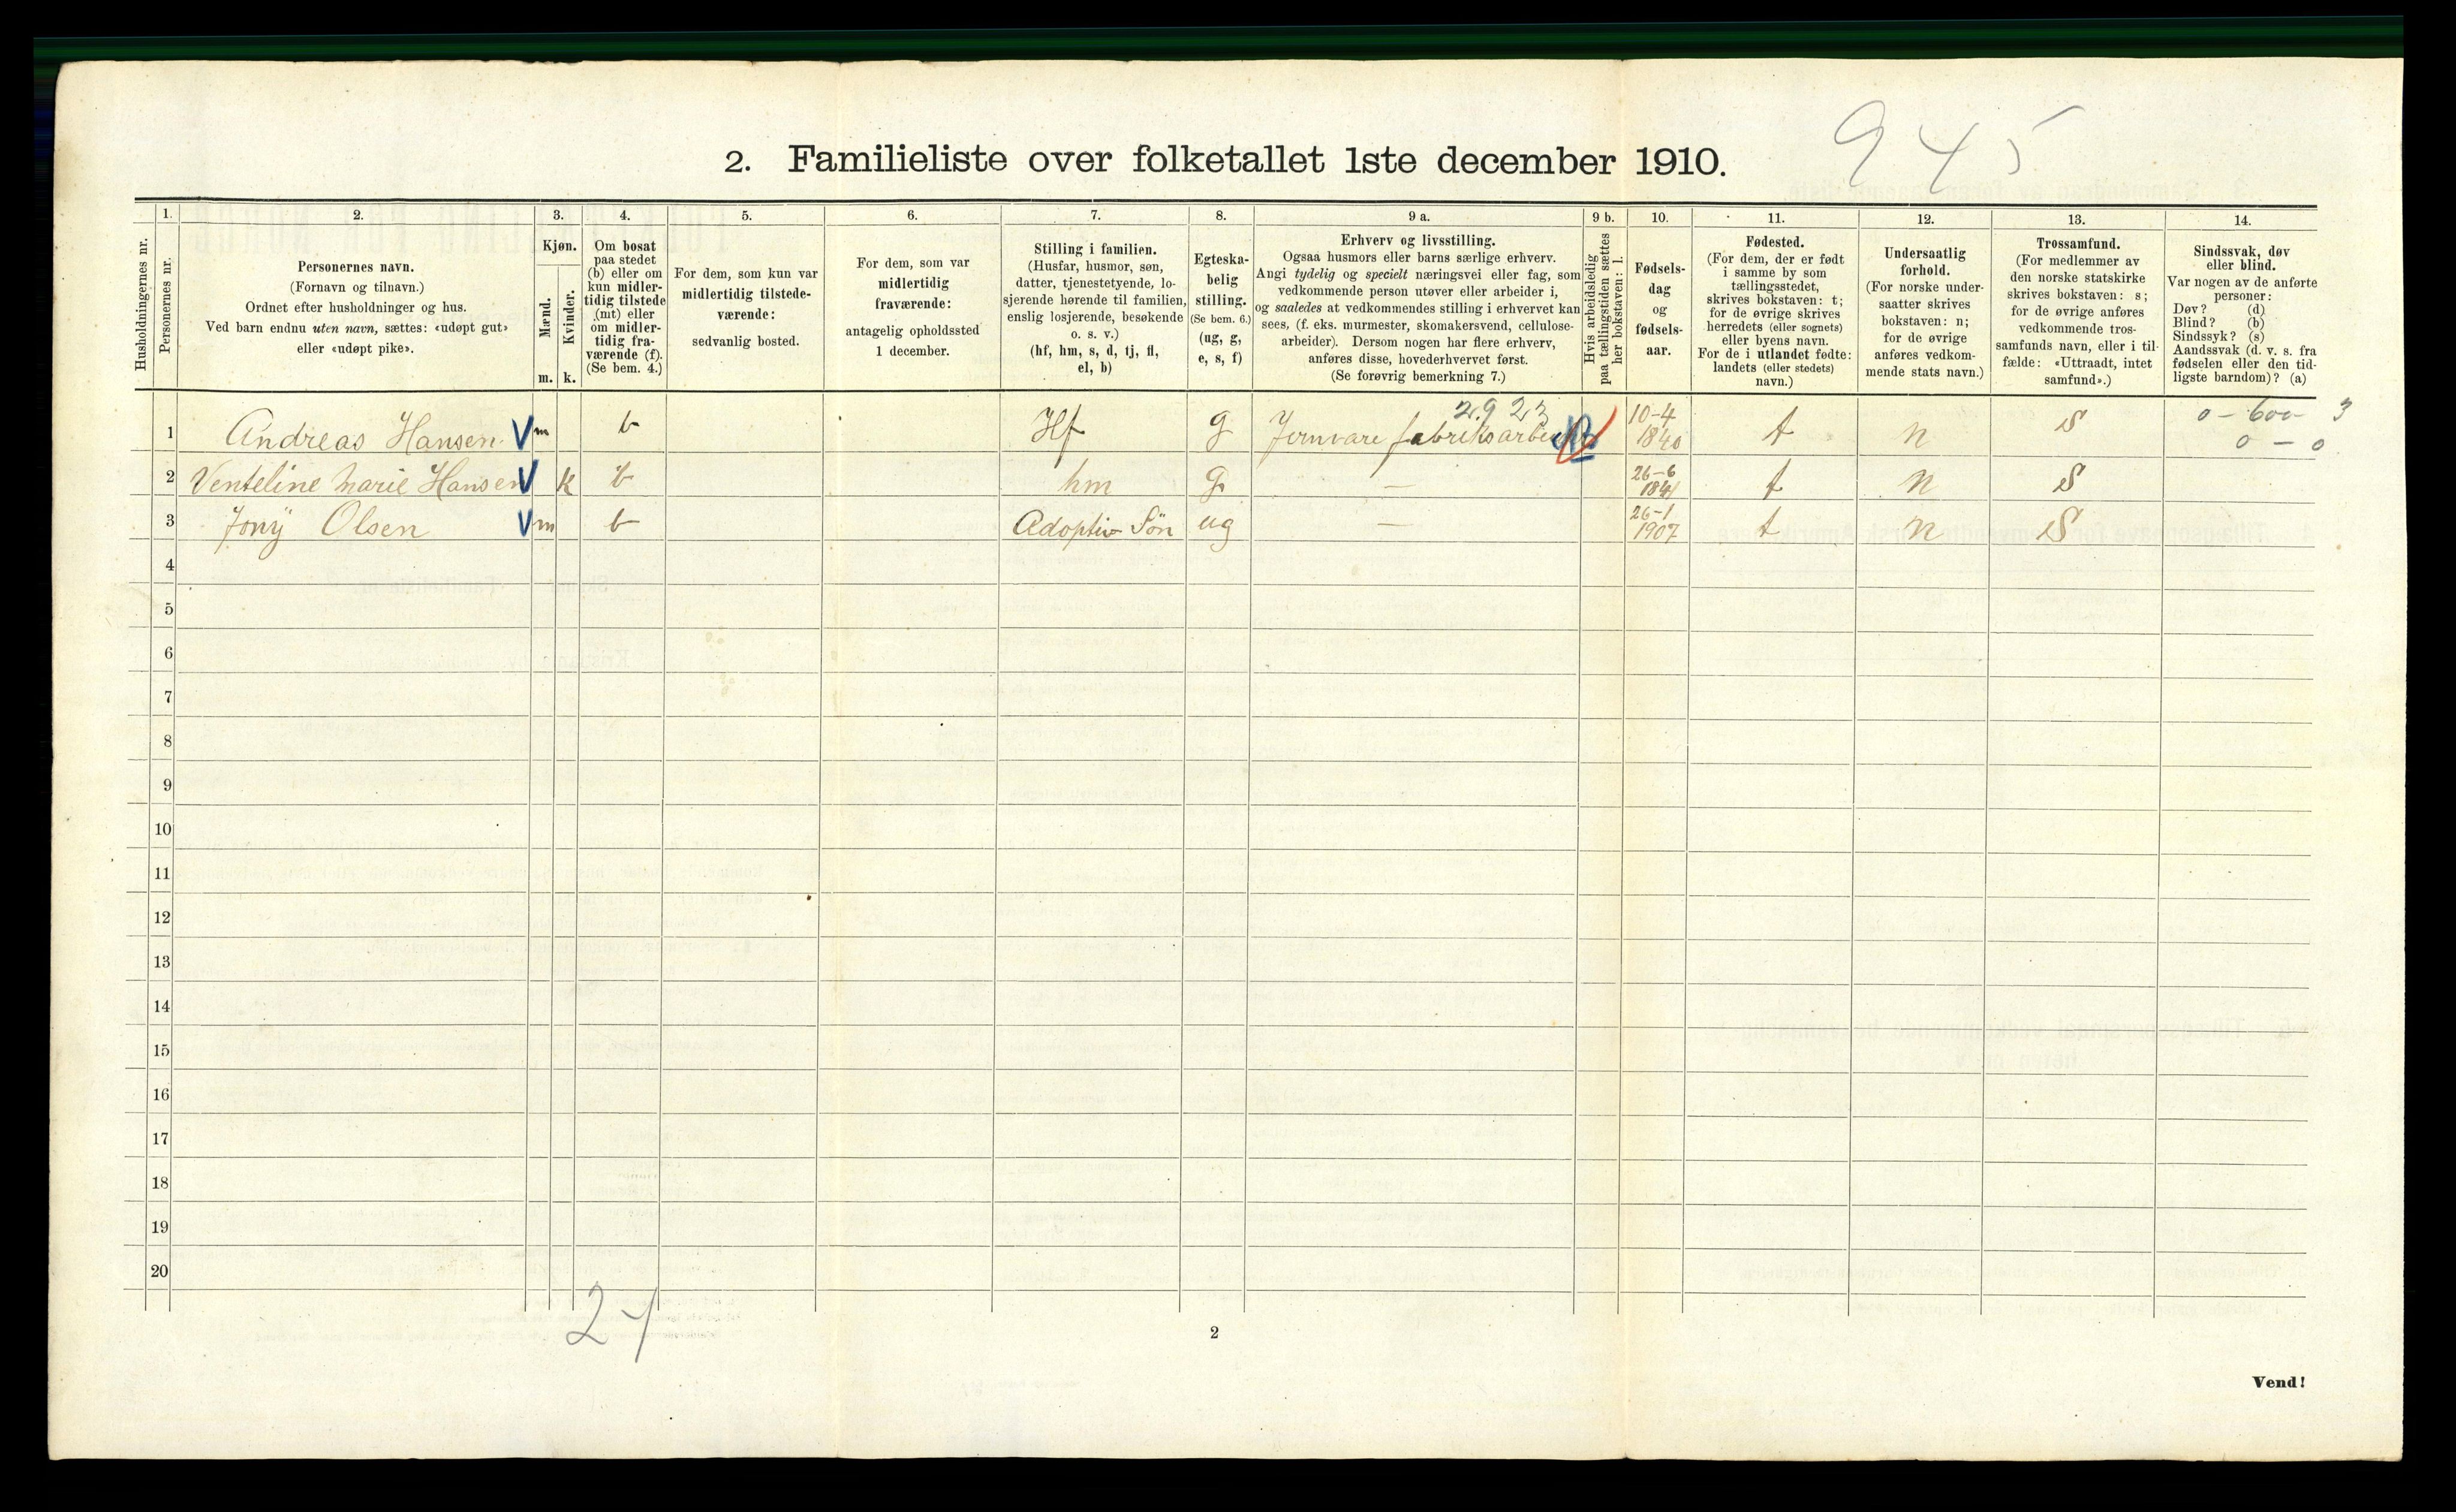 945
2. Familieliste over folketallet 1ste december 1910.
Husholdningernes nr.
1.
Personernes nr.
2.
Personernes navn.
(Fornavn og tilnavn.)
Ordnet efter husholdninger og hus.
Ved barn endnu uten navn, sættes: «udøpt gut»
eller «udøpt pike».
3.
Kjøn.
Mænd.
m.
Kvinder.
k.
4.
Om bosat
paa stedet
(b) eller om
kun midler-
tidig tilstede
(mt) eller
om midler-
tidig fra-
værende (f).
(Se bem. 4.)
5.
For dem, som kun var
midlertidig tilstede-
værende:
sedvanlig bosted.
6.
For dem, som var
midlertidig
fraværende:
antagelig opholdssted
1 december.
7.
Stilling i familien.
(Husfar, husmor, søn,
datter, tjenestetyende, lo-
sjerende hørende til familien,
enslig losjerende, besøkende
o. s. v.)
(hf, hm, s, d, tj, fl,
el, b)
8.
Egteska-
belig
stilling.
(Se bem. 6.)
(ug, g,
e, s, f)
9 a.
Erhverv og livsstilling.
Ogsaa husmors eller barns særlige erhverv.
Angi tydelig og specielt næringsvei eller fag, som
vedkommende person utøver eller arbeider i,
og saaledes at vedkommendes stilling i erhvervet kan
sees, (f. eks. murmester, skomakersvend, cellulose-
arbeider). Dersom nogen har flere erhverv,
anføres disse, hovederhvervet først.
(Se forøvrig bemerkning 7.)
9 b.
Hvis arbeidsledig
paa tællingstiden sættes
her bokstaven: l.
10.
Fødsels-
dag
og
fødsels-
aar.
11.
Fødested.
(For dem, der er født
i samme by som
tællingsstedet,
skrives bokstaven: t;
for de øvrige skrives
herredets (eller sognets)
eller byens navn.
For de i utlandet fødte:
landets (eller stedets)
navn.)
12.
Undersaatlig
forhold.
(For norske under-
saatter skrives
bokstaven: n;
for de øvrige
anføres vedkom-
mende stats navn.)
13.
Trossamfund.
(For medlemmer av
den norske statskirke
skrives bokstaven: s;
for de øvrige anføres
vedkommende tros-
samfunds navn, eller i til-
fælde: «Uttraadt, intet
samfund».)
14.
Sindssvak, døv
eller blind.
Var nogen av de anførte
personer:
Døv? (d)
Blind? (b)
Sindssyk? (s)
Aandssvak (d. v. s. fra
fødselen eller den tid-
ligste barndom)? (a)
2923 10-4 0 - 600 - 3
1 Andreas Hansen V m b Hf g Jernvare fabriksarbeider 1840 t n S 0 - 0
26-6
2 Venteline Marie Hansen V k b hm g — 1841 t n S
26-1
3 Jony Olsen V m b Adoptiv Søn ug — 1907 t n S
4
5
6
7
8
9
10
11
12
13
14
15
16
17
18
19
20
2
Vend!